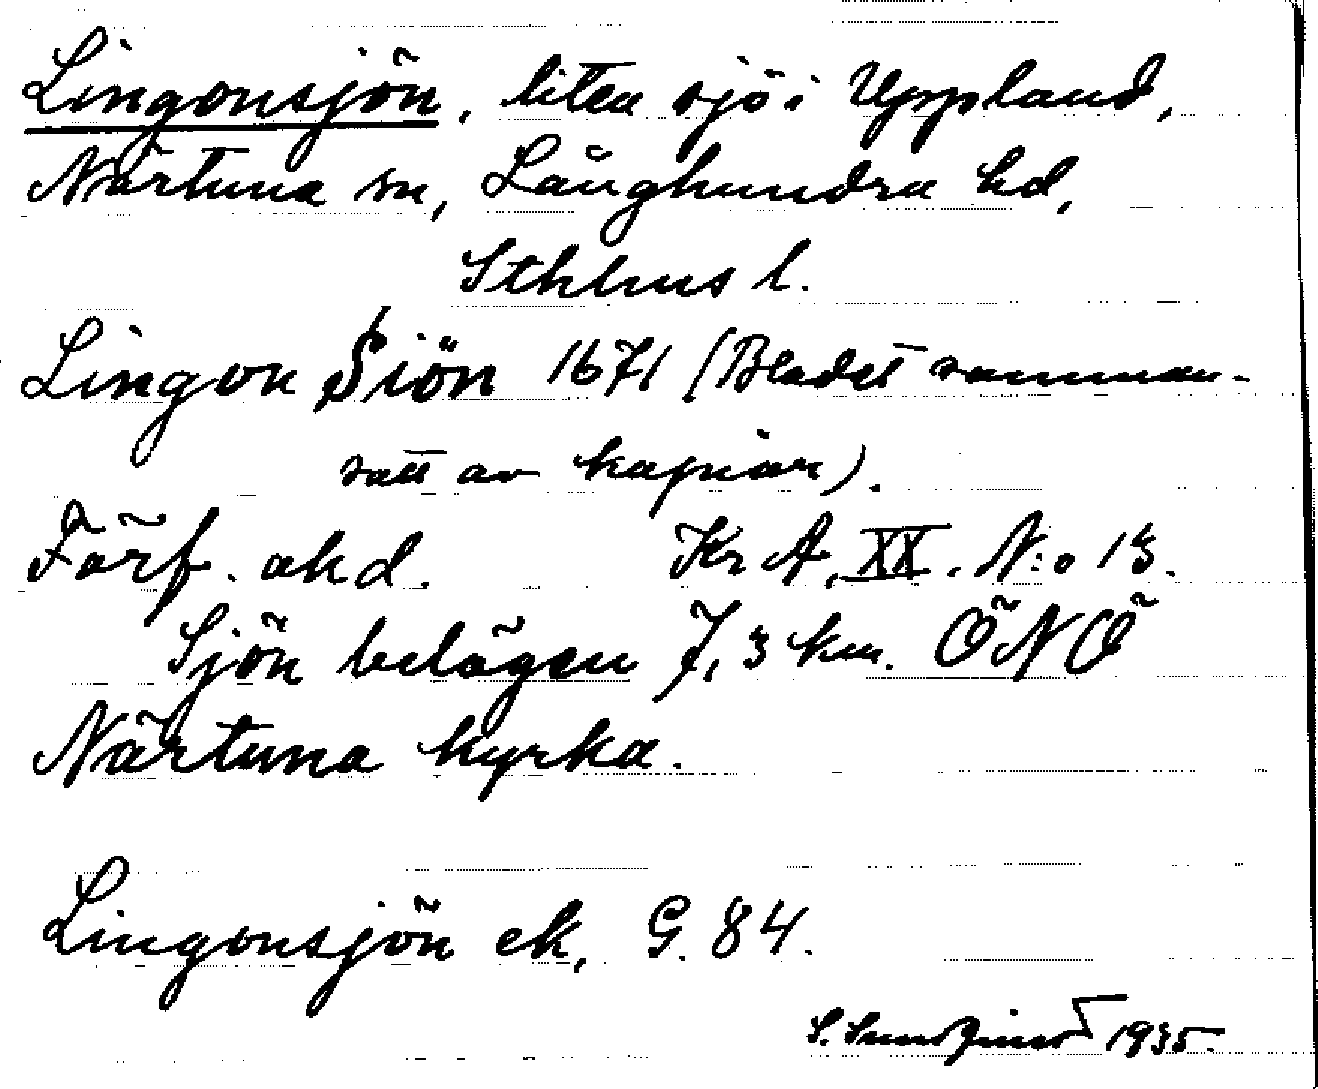 Lingonsjön, liten sjö i Uppland,
Närtuna sn, Långhundra hd,
Sthlms l.
Lingon Siön 1671 (Bladet samman-
satt av kopior).
Förf. okd. Kr A, XX. N:o 13.
Sjön belägen 7,3 km. ÖNÖ
Närtuna kyrka.
Lingonsjön ek, G. 84.
S. Sundquist 1935.